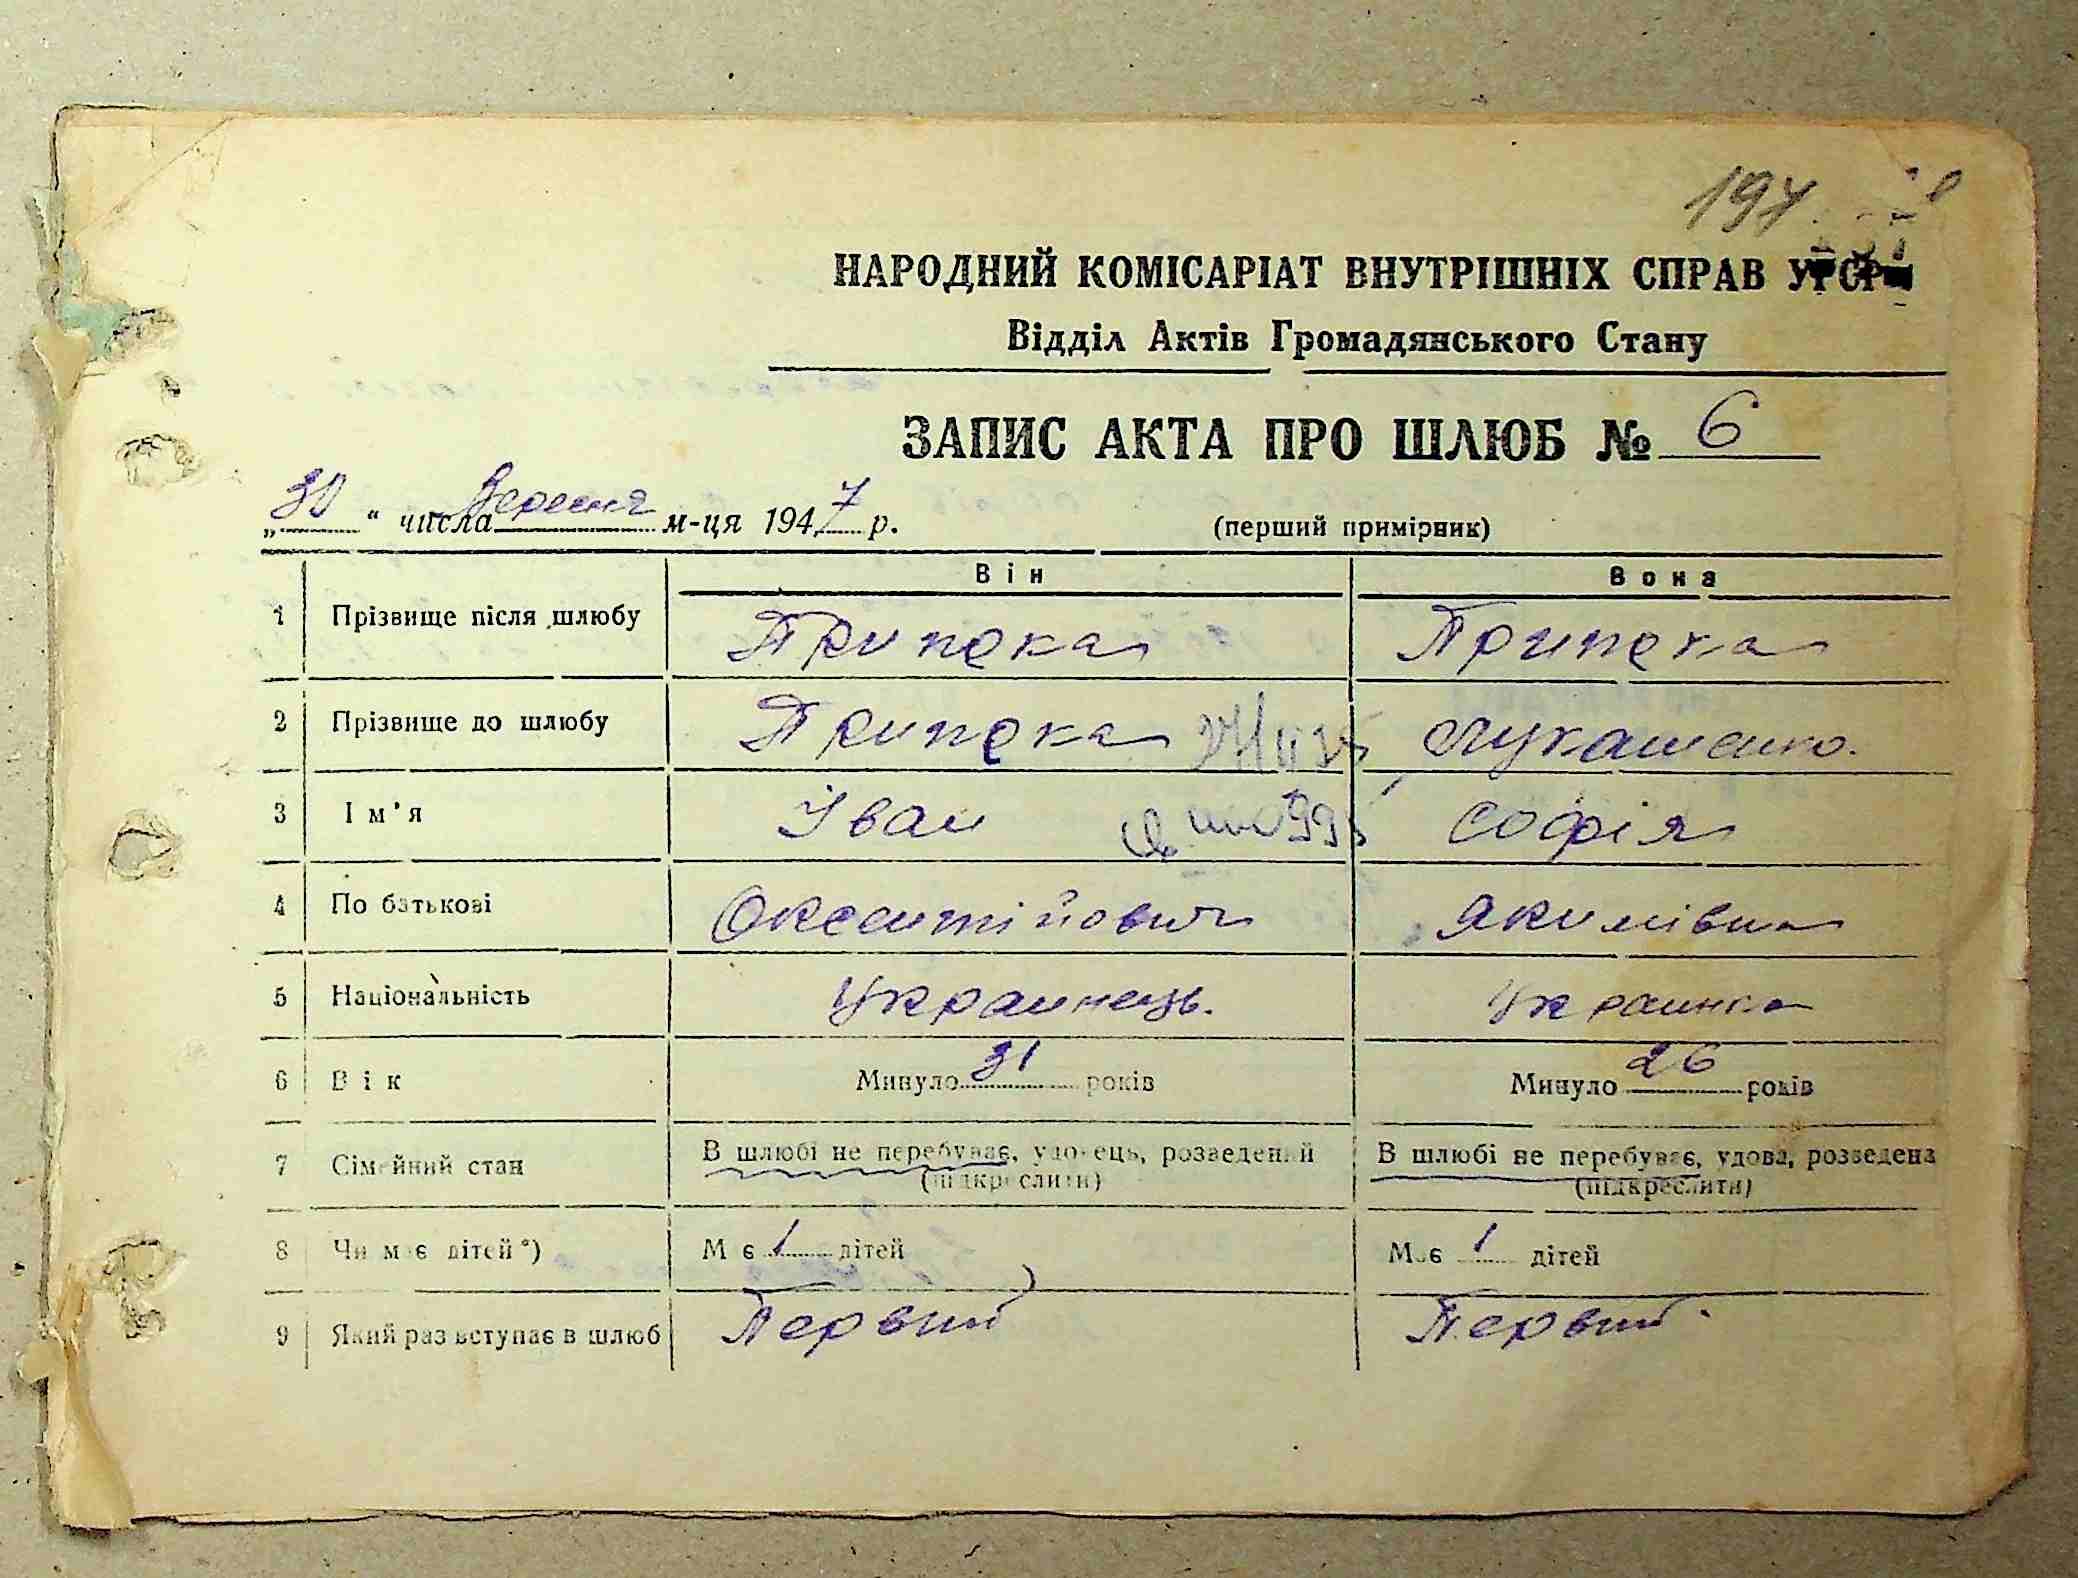 197
НАРОДНИЙ КОМІСАРІАТ ВНУТРІШНІХ СПРАВ УРСР
Відділ Актів Громадянського Стану
ЗАПИС АКТА ПРО ШЛЮБ № 6
„30“ числа Вересня м-ця 1947 р. (перший примірник)
Він Вона
1 Прізвище після шлюбу Припека Припека
2 Прізвище до шлюбу Припека Лукашенко.
3 Ім'я Іван Софія
4 По батькові Оксентійович Якимівна
5 Національність Украинець. Украинка
6 Вік Минуло 31 років Минуло 26 років
7 Сімейний стан В шлюбі не перебуває, удовець, розведений В шлюбі не перебуває, удова, розведена
(підкреслити) (підкреслити)
8 Чи має дітей*) Має 1 дітей Має 1 дітей
9 Який раз вступає в шлюб Первий Первий